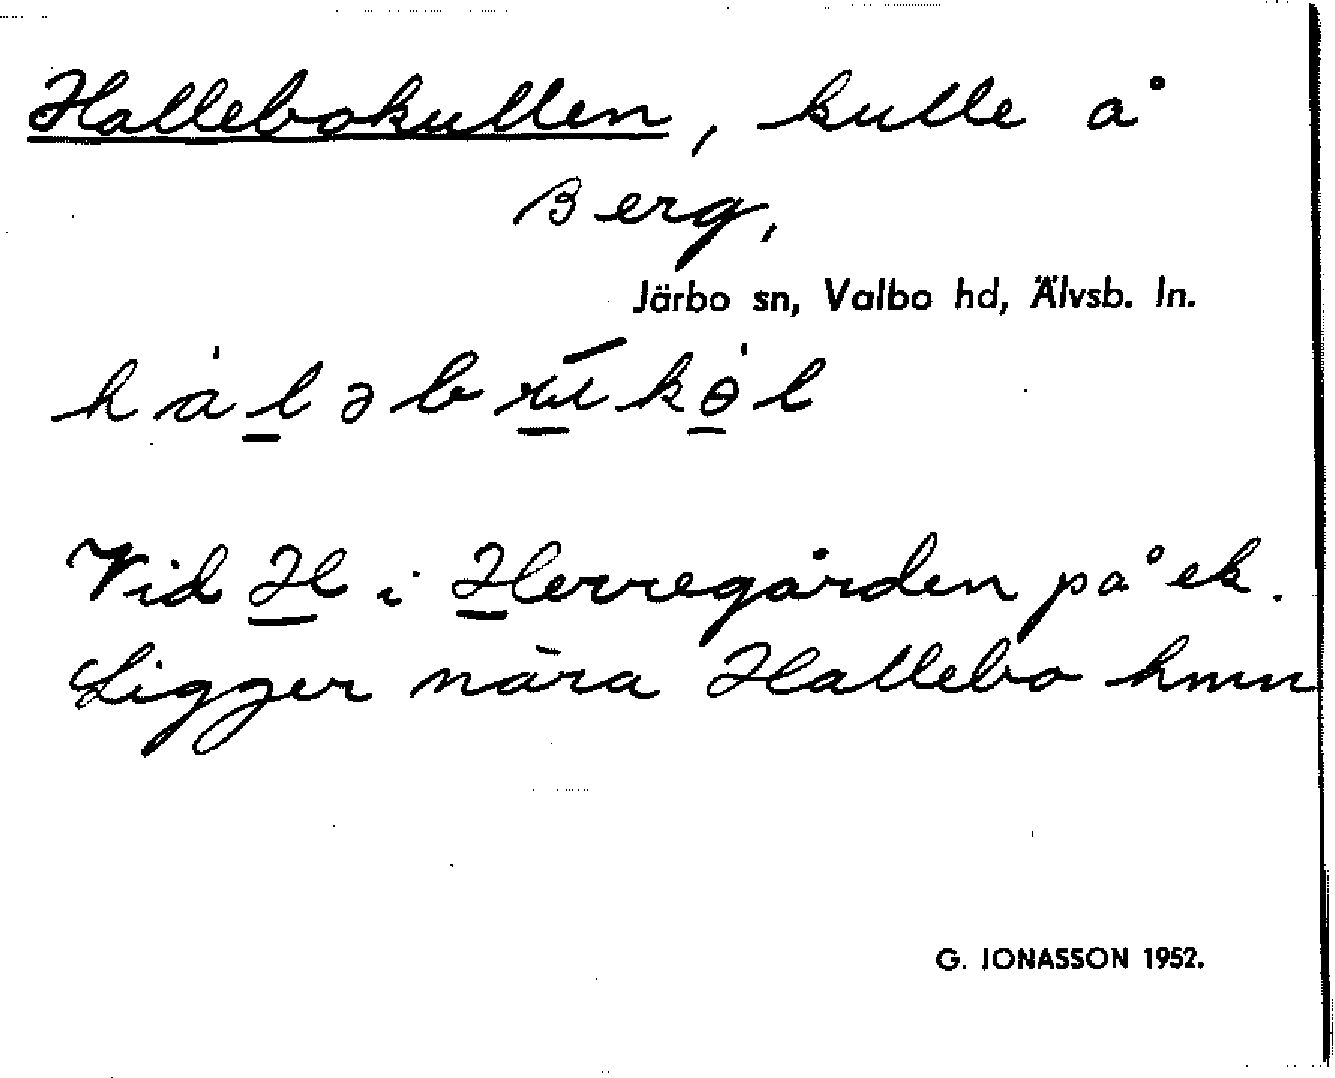 Hallebokullen, kulle å
Berg,
Järbo sn, Valbo hd, Älvsb. ln.
Vid H i Herregården på ek.
Ligger nära Hallebo hmn
G. JONASSON 1952.